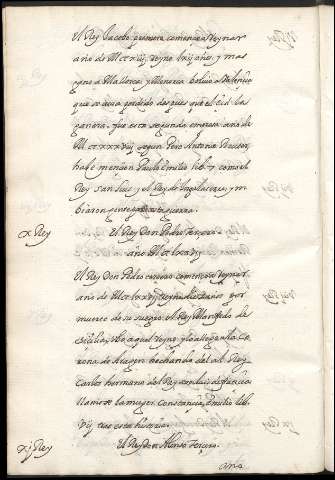 El Rey Jacobo primero començo a Reynar
año de Mccxiij, Reyno lxiij años, y mas
gano a Mallorca y Menorca boluio a Valencia
que se auia perdido despues que el cid la
ganara. fue esta segunda empresa año de
Mccxxxviij segun Pero Antonio Beuter,
haze mencion Paulo Emilio lib. 7 como el
Rey san luis y el Rey de Inglaterra, y m
biaron gente a esta guerra.
x Rey El Rey Don Pedro Tercero
año Mcclxxvij
El Rey Don Pedro tercero començo a Reynar
año de Mcclxxvij Reyno diez años por
muerte de su suegro el Rey Manfredo de
sicilia, vbo aquel Reyno y lo allego a la Co
rona de Aragon hechando del al Rey
Carlos hermano del Rey san luis de francia
llamose la muger Constancia, Emilio lib.
viij trae esta historia.
xj Rey El Rey Don Alonso Tercero
año